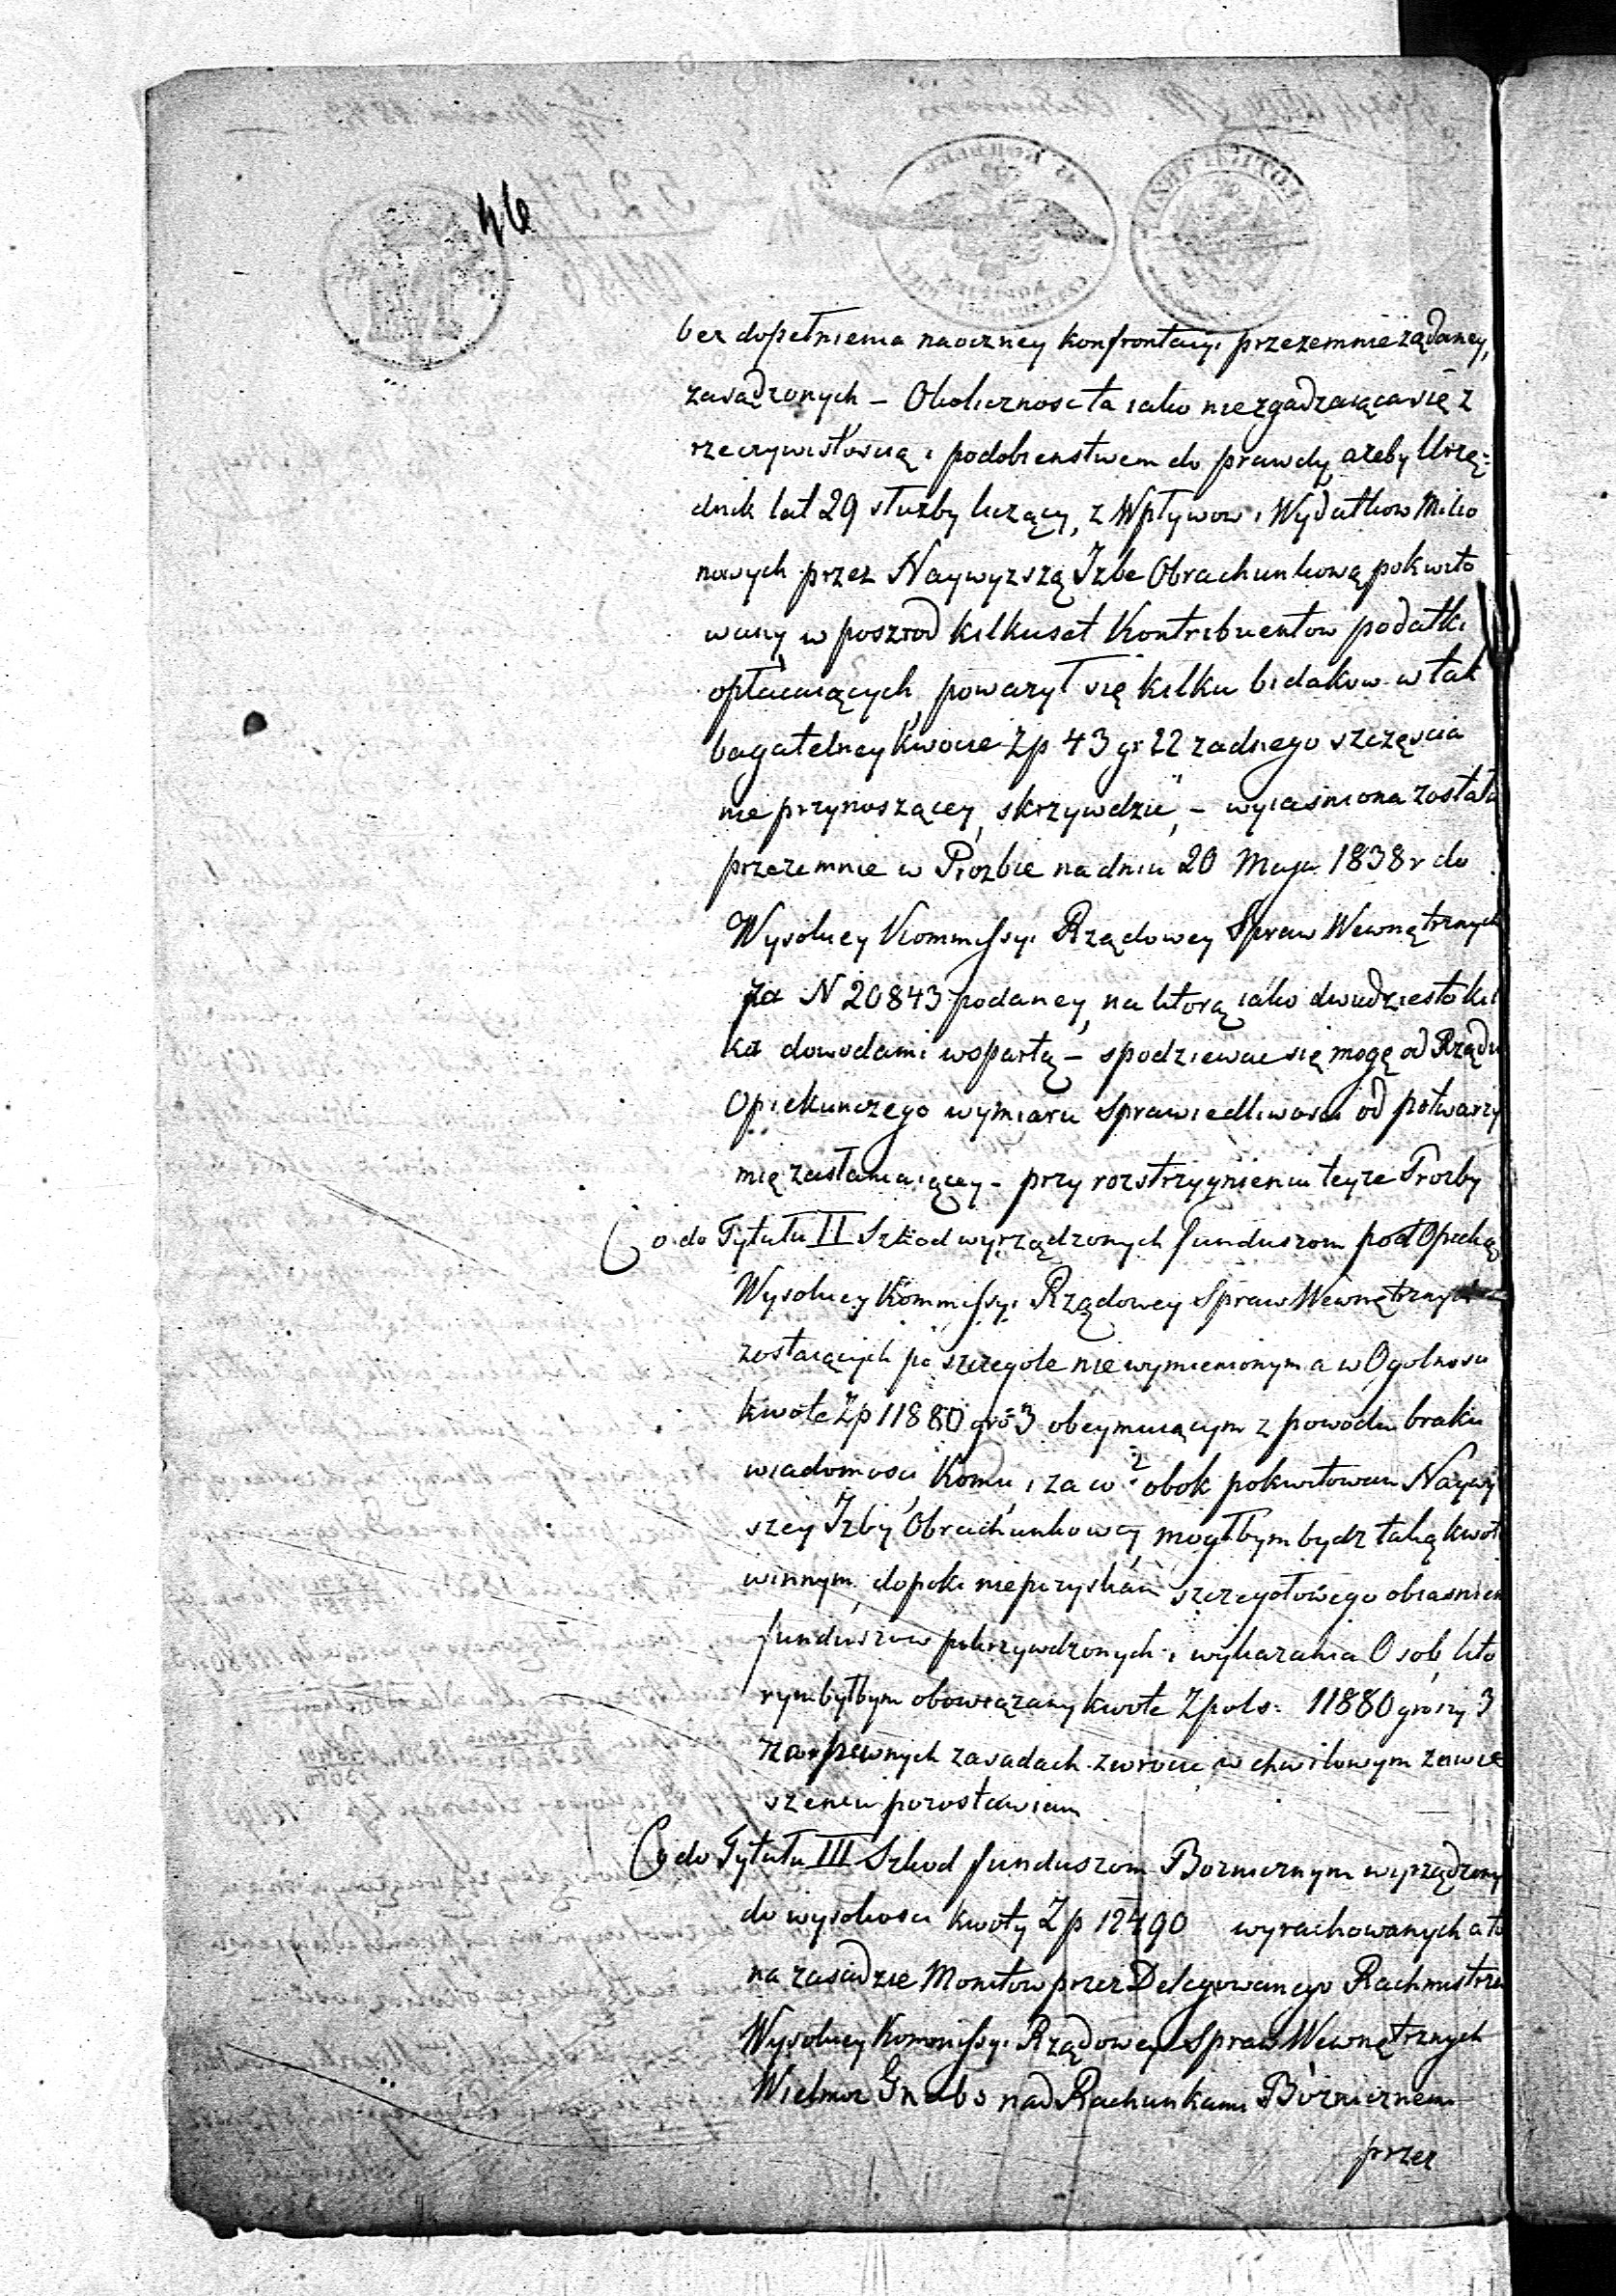 46
bez dopełnienia naoczney konfrontacyi przezemnie żądaney,
zasądzonych – Okolicznosc ta iako niezgadzaiąca się z
rzeczywistoscią i podobienstwem do prawdy, ażeby Urzę:
dnik lat 29 służby liczący, z Wpływow i Wydatkow Milio
nowych przez Naywyzszą Izbe Obrachunkową pokwito
wany w poszrod kilkuset Kontribuentow podatki
opłacaiących, poważył się kilku bidakow w tak
bagatelney kwocie Zp 43 gr 22 zadnego szczęscia
nie przynoszącey, skrzywdzic, – wyiaśniona została
przezemnie w Prozbie na dniu 20 Maja 1838 r do
Wysokiey Kommissyi Rządowey Spraw Wewnętrznych
za N 20843 podaney, na ktorą iako dwudziesto kil
ka dowodami wspartą – spodziewac się mogę od Rządu
Opiekunczego wymiaru Sprawiedliwosci od potwarzy
mię zasłaniaiącey – przy rozstrzygnieniu teyze Prozby
Co do Tytułu II Szkod wyrządzonych funduszom pod Opieką
Wysokiey Kommissyi Rządowey Spraw Wewnętrznych
zostaiących po szczegole niewymienionym a w Ogolnosci
kwotę Zp 11880 gro 3 obeymuiącym z powodu braku
wiadomosci, Komu, i za co? obok pokwitowan Naywy
szey Izby Obrachunkowey mogłbym bydz taką kwotę
winnym, dopoki nie pozyskam szczegołowego obiasnien
funduszow pokrzywdzonych i wykazania Osob, kto
rym byłbym obowiązany kwotę Zpols: 11880 groszy 3
na pewnych zasadach zwrocic w chwilowym zawie
szeniu pozostawiam
Co do Tytułu III Szkod funduszom Boznicznym wyrządzony
do wysokosci kwoty Zp 12490 wyrachowanych a to
na zasadzie Monitow przez Delegowanego Rachmistrza
Wysokiey Kommissyi Rządowey Spraw Wewnętrznych
Wielmoz Gnabs nad Rachunkami Bóznicznemi
przez